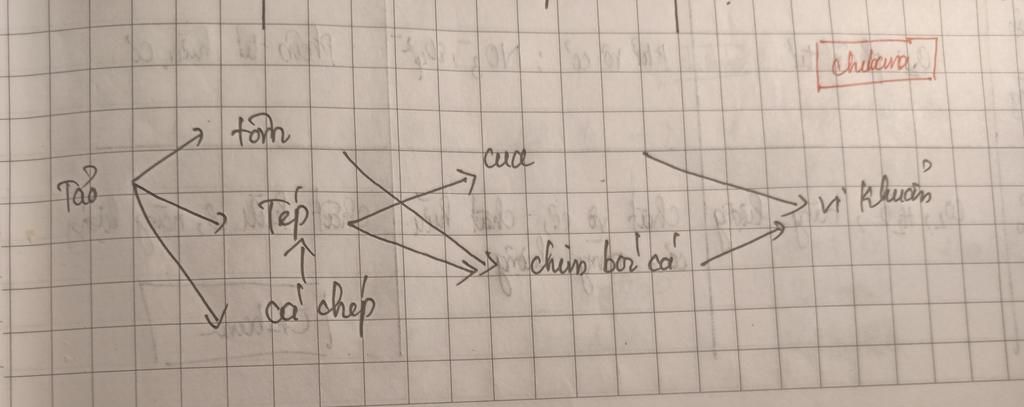 tôm
cua
Tảo
Tép
vi khuẩn
chim bói cá
cá chép